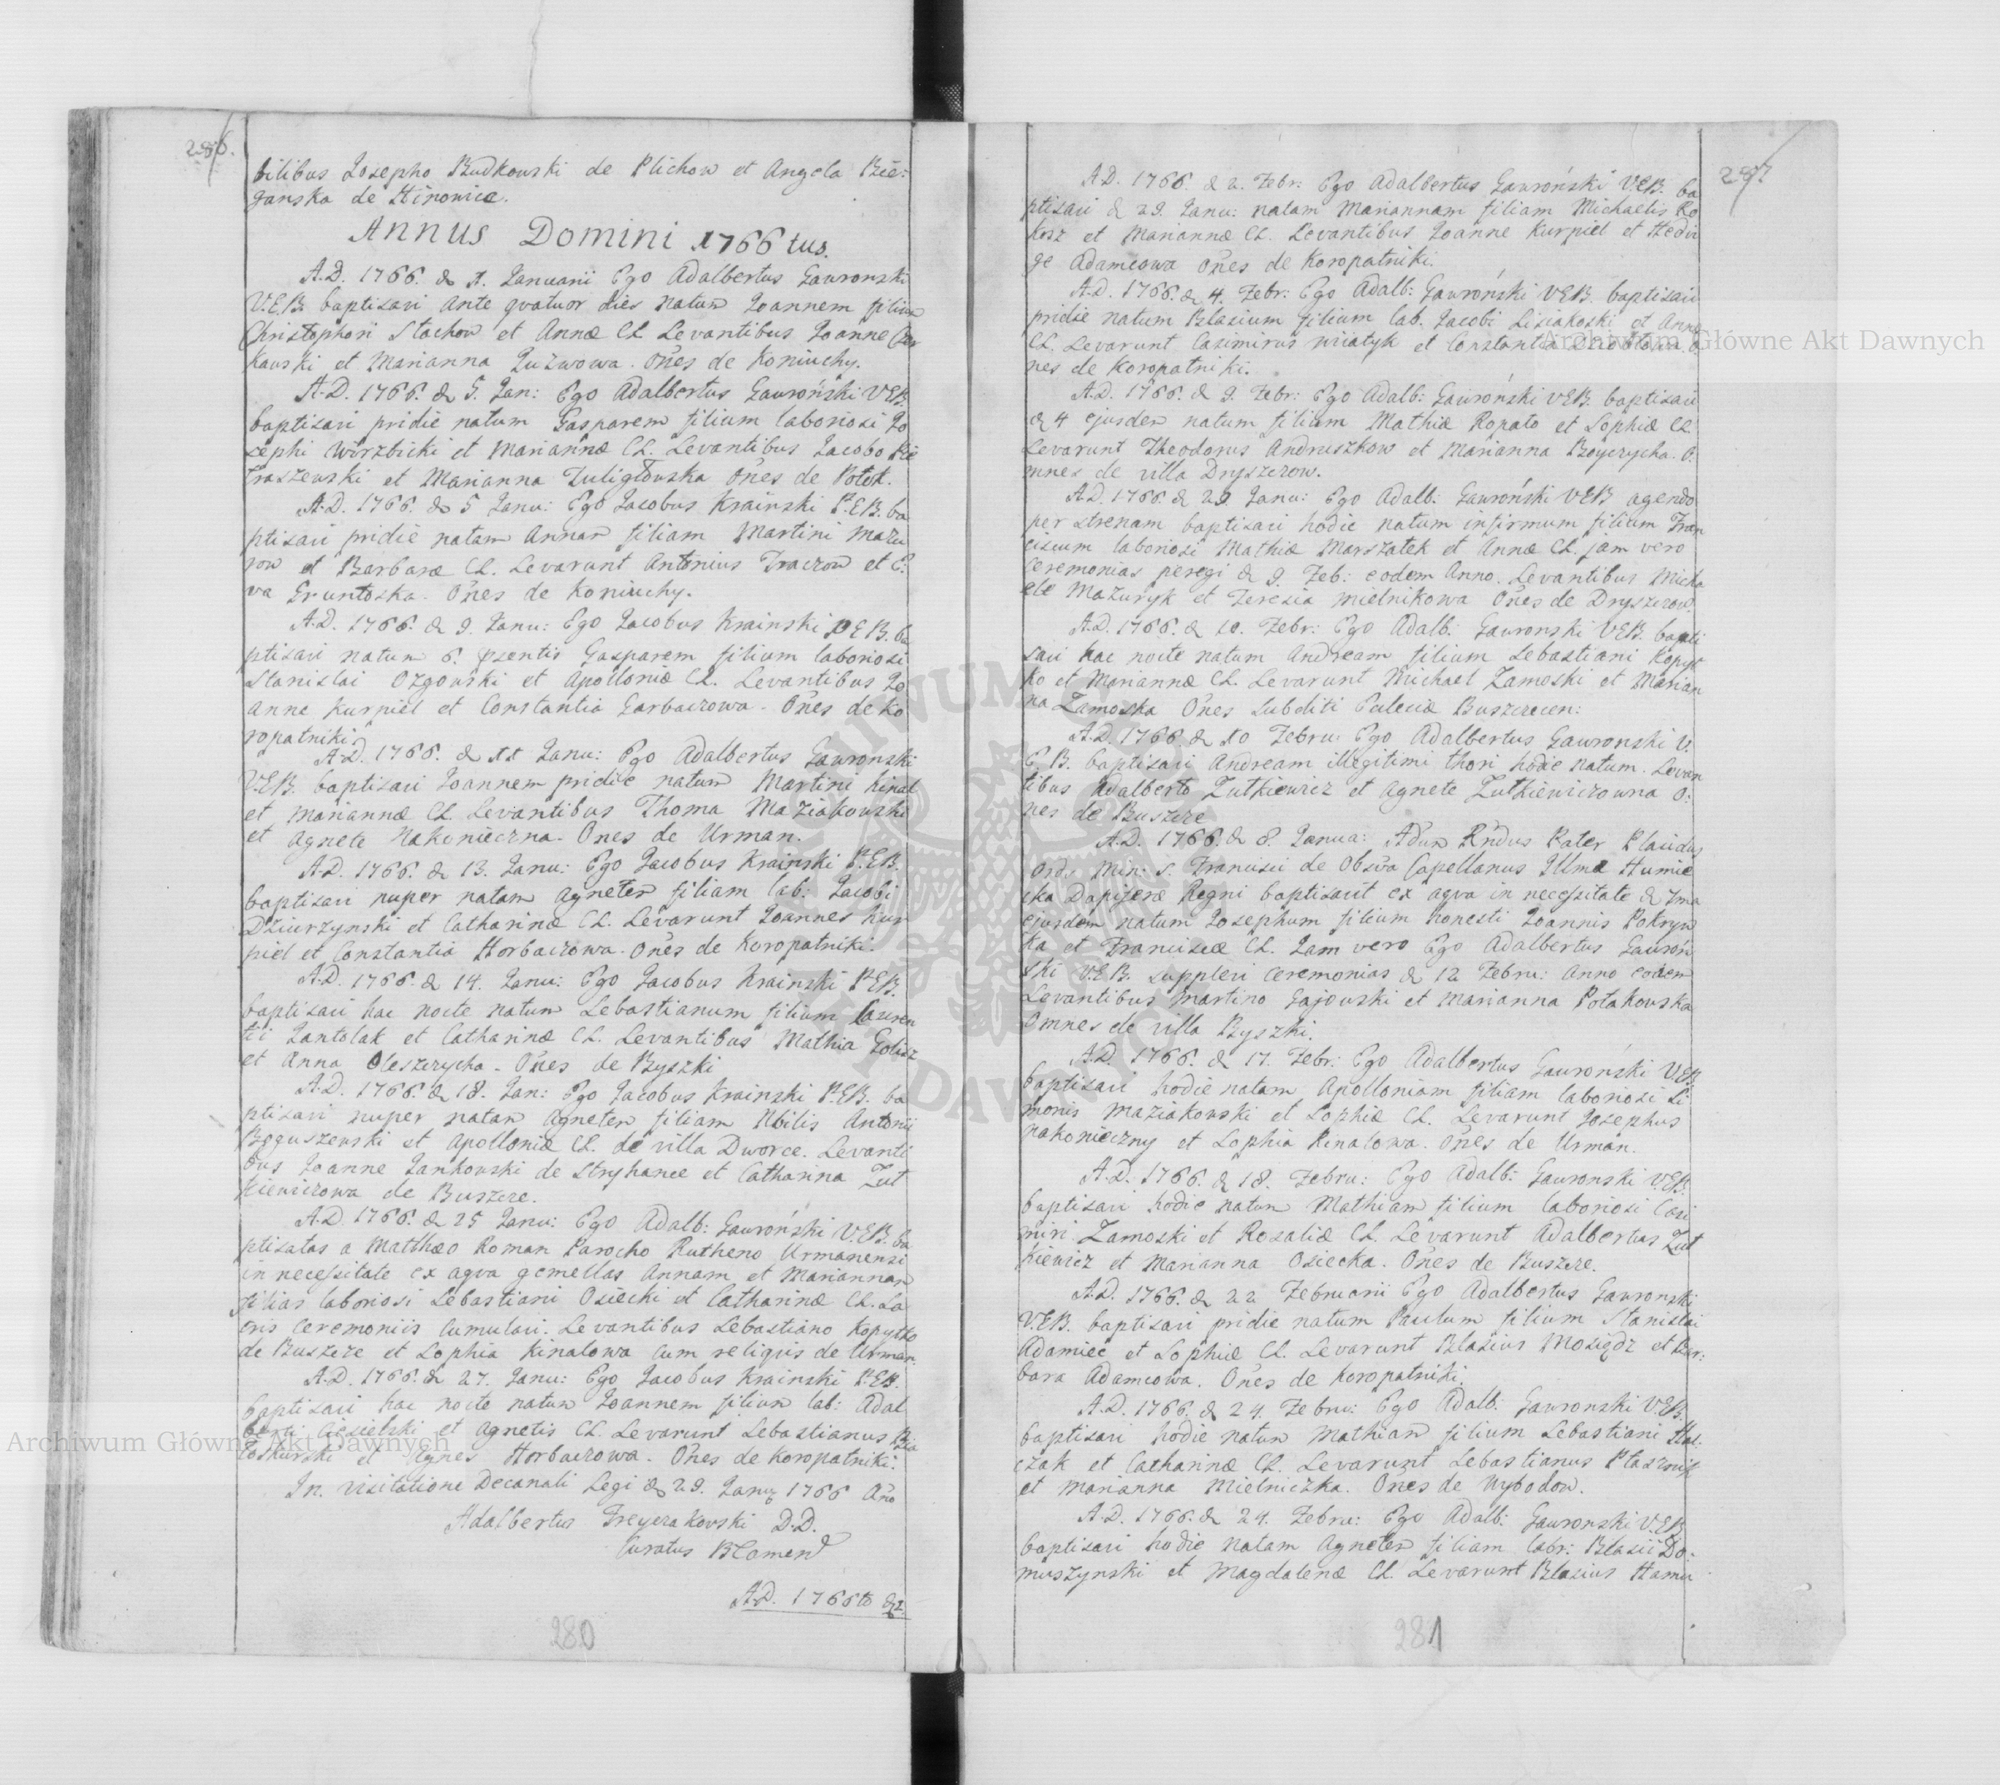 286.
bilibus Josepho Budkowski de Plichow et Angela Bie=
ganska de Hinowice.
Annus Domini 1766tus.
A.D. 1766. d. 1. Januarii Ego Adalbertus Gawronski
V.E.B. baptisavi ante qvatuor dies natum Joannem filium
Christophori Stachow et Annæ CL. Levantibus Joanne
kowski et Marianna Juzwowa. Oñes de Koniuchy.
A.D. 1766. d. 5. Jan: Ego Adalbertus Gawroński V.E.B.
baptisavi pridie natum Gasparem filium laboriosi Jo
sephi Wirzbicki et Mariannæ CL. Levantibus Jacobo Pie
traszewski et Marianna Zuligłowska Oñes de Potok.
A.D. 1766. d. 5 Janu: Ego Jacobus Krainski P.E.B. ba
ptisavi pridie natam Annam filiam Martini Mazu
row et Barbaræ CL. Levarunt Antonius Traczow et E:
va Gruntoska. Oñes de Koniuchy.
A.D. 1766. d. 9. Janu: Ego Jacobus Krainski P.E.B. ba
ptisavi natum 6. psentis Gasparem filium laboriosi
Stanislai Ozgowski et Apolloniæ CL. Levantibus Jo
anne Kurpiel et Constantia Garbaczowa. Oñes de Ko
ropatniki.
A.D. 1766. d. 11 Janu: Ego Adalbertus Gawronski
V.E.B. baptisavi Joannem pridie natum Martini Kinal
et Mariannæ CL. Levantibus Thoma Maziakowski
et Agnete Nakonieczna. Ones de Urman.
A.D. 1766. d. 13. Janu: Ego Jacobus Krainski P.E.B.
baptisavi nuper natam Agnetem filiam lab: Jacobi
Dziurzynski et Catharinæ CL. Levarunt Joannes Kur
piel et Constantia Horbaczowa. Oñes de Koropatniki.
A.D. 1766. d. 14. Janu: Ego Jacobus Krainski P.E.B.
baptisavi hac nocte natum Sebastianum filium Lauren
tii Jantolak et Catharinæ CL. Levantibus Mathia
et Anna Oleszczycha. Oñes de Byszki
A.D. 1766. d. 18. Jan: Ego Jacobus Krainski P.E.B. ba
ptisavi nuper natam Agnetem filiam Nbilis Antonii
Boguszewski et Apolloniæ CL. de villa Dworce. Levanti
bus Joanne Jankowski de Stryhance et Catharina Zut
kiewiczowa de Buszcze.
A.D. 1766. d. 25 Janu: Ego Adalb: Gawroński V.E.B. ba
ptisatas a Matthæo Roman Parocho Rutheno Urmanensi
in necessitate ex aqva gemellas Annam et Mariannam
filias laboriosi Sebastiani Osiecki et Catharinæ CL. Sa
cris Ceremoniis Cumulavi. Levantibus Sebastiano Kopytko
de Buszcze et Sophia Kinalowa cum reliquis de Urman.
A.D. 1766. d. 27. Janu: Ego Jacobus Krainski P.E.B.
baptisavi hac nocte natum Joannem filium lab: Adal
berti Ciesielski et Agnetis CL. Levarunt Sebastianus
et Agnes Horbaczowa. Oñes de Koropatniki.
In visitatione Decanali Legi d. 29. Janu 1766 Año
Adalbertus Treyerakowski D.D.
Curatus
A.D. 1766to d. 2.
280
287
A.D. 1766. d. 2. Febr: Ego Adalbertus Gawroński V.E.B. ba
ptisavi d. 29. Janu: natam Mariannam filiam Michaelis Ko
kosz et Mariannæ CL. Levantibus Joanne Kurpiel et Hedvi
ge Adamcowa Oñes de Koropatniki.
A.D. 1766. d. 4. Febr: Ego Adalb: Gawroński V.E.B. baptisavi
pridie natum Blasium filium lab. Jacobi Lisiakoski et Annæ
CL. Levarunt Casimirus Wiatyk et Constantia O:
nes de Koropatniki.
A.D. 1766. d. 9. Febr: Ego Adalb: Gawroński V.E.B. baptisavi
d. 4 ejusdem natum filium Mathiæ Kopato et Sophiæ CL.
Levarunt Theodorus Andruszkow et Marianna Boyczycha. O:
mnes de villa Dryszczow.
A.D. 1766. d. 29. Janu: Ego Adalb: Gawroński V.E.B agendo
per strenam baptisavi hodie natum infirmum filium Fran
ciscum laboriosi Mathiæ Marszałek et Annæ CL. jam vero
Ceremonias peregi d. 9. Feb: eodem Anno. Levantibus Micha
ele Mazuryk et Teresia Mielnikowa Oñes de Dryszczow.
A.D. 1766. d. 10. Febr: Ego Adalb: Gawronski V.E.B. bapti
savi hac nocte natum Andream filium Sebastiani Kopyt
ko et Mariannæ CL. Levarunt Michael Zamoski et Marian
na Zamoska Oñes Subditi Buszczecen:
A.D. 1766 d. 10 Febru: Ego Adalbertus Gawronski V.
E.B. baptisavi Andream illegitimi thori hodie natum. Levan
tibus Adalberto Zutkiewicz et Agnete Zutkiewiczowna O:
nes de Buszcze
A.D. 1766. d. 8. Janua: Adm Rñdus Pater Placidus
Ord. Min: S. Francisci de Obswa Capellanus Illmæ Humie
cka Dapiferæ Regni baptisavit ex aqva in necessitate d. 7ma
ejusdem natum Josephum filium honesti Joannis Pokryw
ka et Franciscæ CL. Jam vero Ego Adalbertus Gawroń
ski V.E.B. supplevi ceremonias d. 12 Febru: Anno eodem
Levantibus Martino Gajowski et Marianna Potakowska
Omnes de villa Byszki.
A.D. 1766. d. 17. Febr: Ego Adalbertus Gawroński V.E.B
baptisavi hodie natam Apolloniam filiam laboriosi Si
monis Maziakowski et Sophiæ CL. Levarunt Josephus
Nakonieczny et Sophia Kinalowa. Oñes de Urman.
A.D. 1766. d. 18. Febru: Ego Adalb: Gawronski V.E.B.
baptisavi hodie natum Mathiam filium laboriosi Casi
miri Zamoski et Rosaliæ CL. Levarunt Adalbertus Zut
kiewicz et Marianna Osiecka. Oñes de Buszcze.
A.D. 1766. d. 22 Februarii Ego Adalbertus Gawronski
V.E.B. baptisavi pridie natum Paulum filium Stanislai
Adamiec et Sophiæ CL. Levarunt Blasius Mosiądz et Bar:
bara Adamcowa. Oñes de Koropatniki.
A.D. 1766. d. 24. Febru: Ego Adalb: Gawronski V.E.B.
baptisavi hodie natum Mathiam filium Sebastiani
czak et Catharinæ CL. Levarunt Sebastianus Ptasznik
et Marianna Mielniczka. Oñes de Wybodow.
A.D. 1766. d. 24. Febru: Ego Adalb: Gawronski V.E.B
baptisavi hodie natam Agnetem filiam labr: Blasii Do:
muszynski et Magdalenæ CL. Levarunt Blasius Hamu
281
Archiwum Główne Akt Dawnych
Archiwum Główne Akt Dawnych